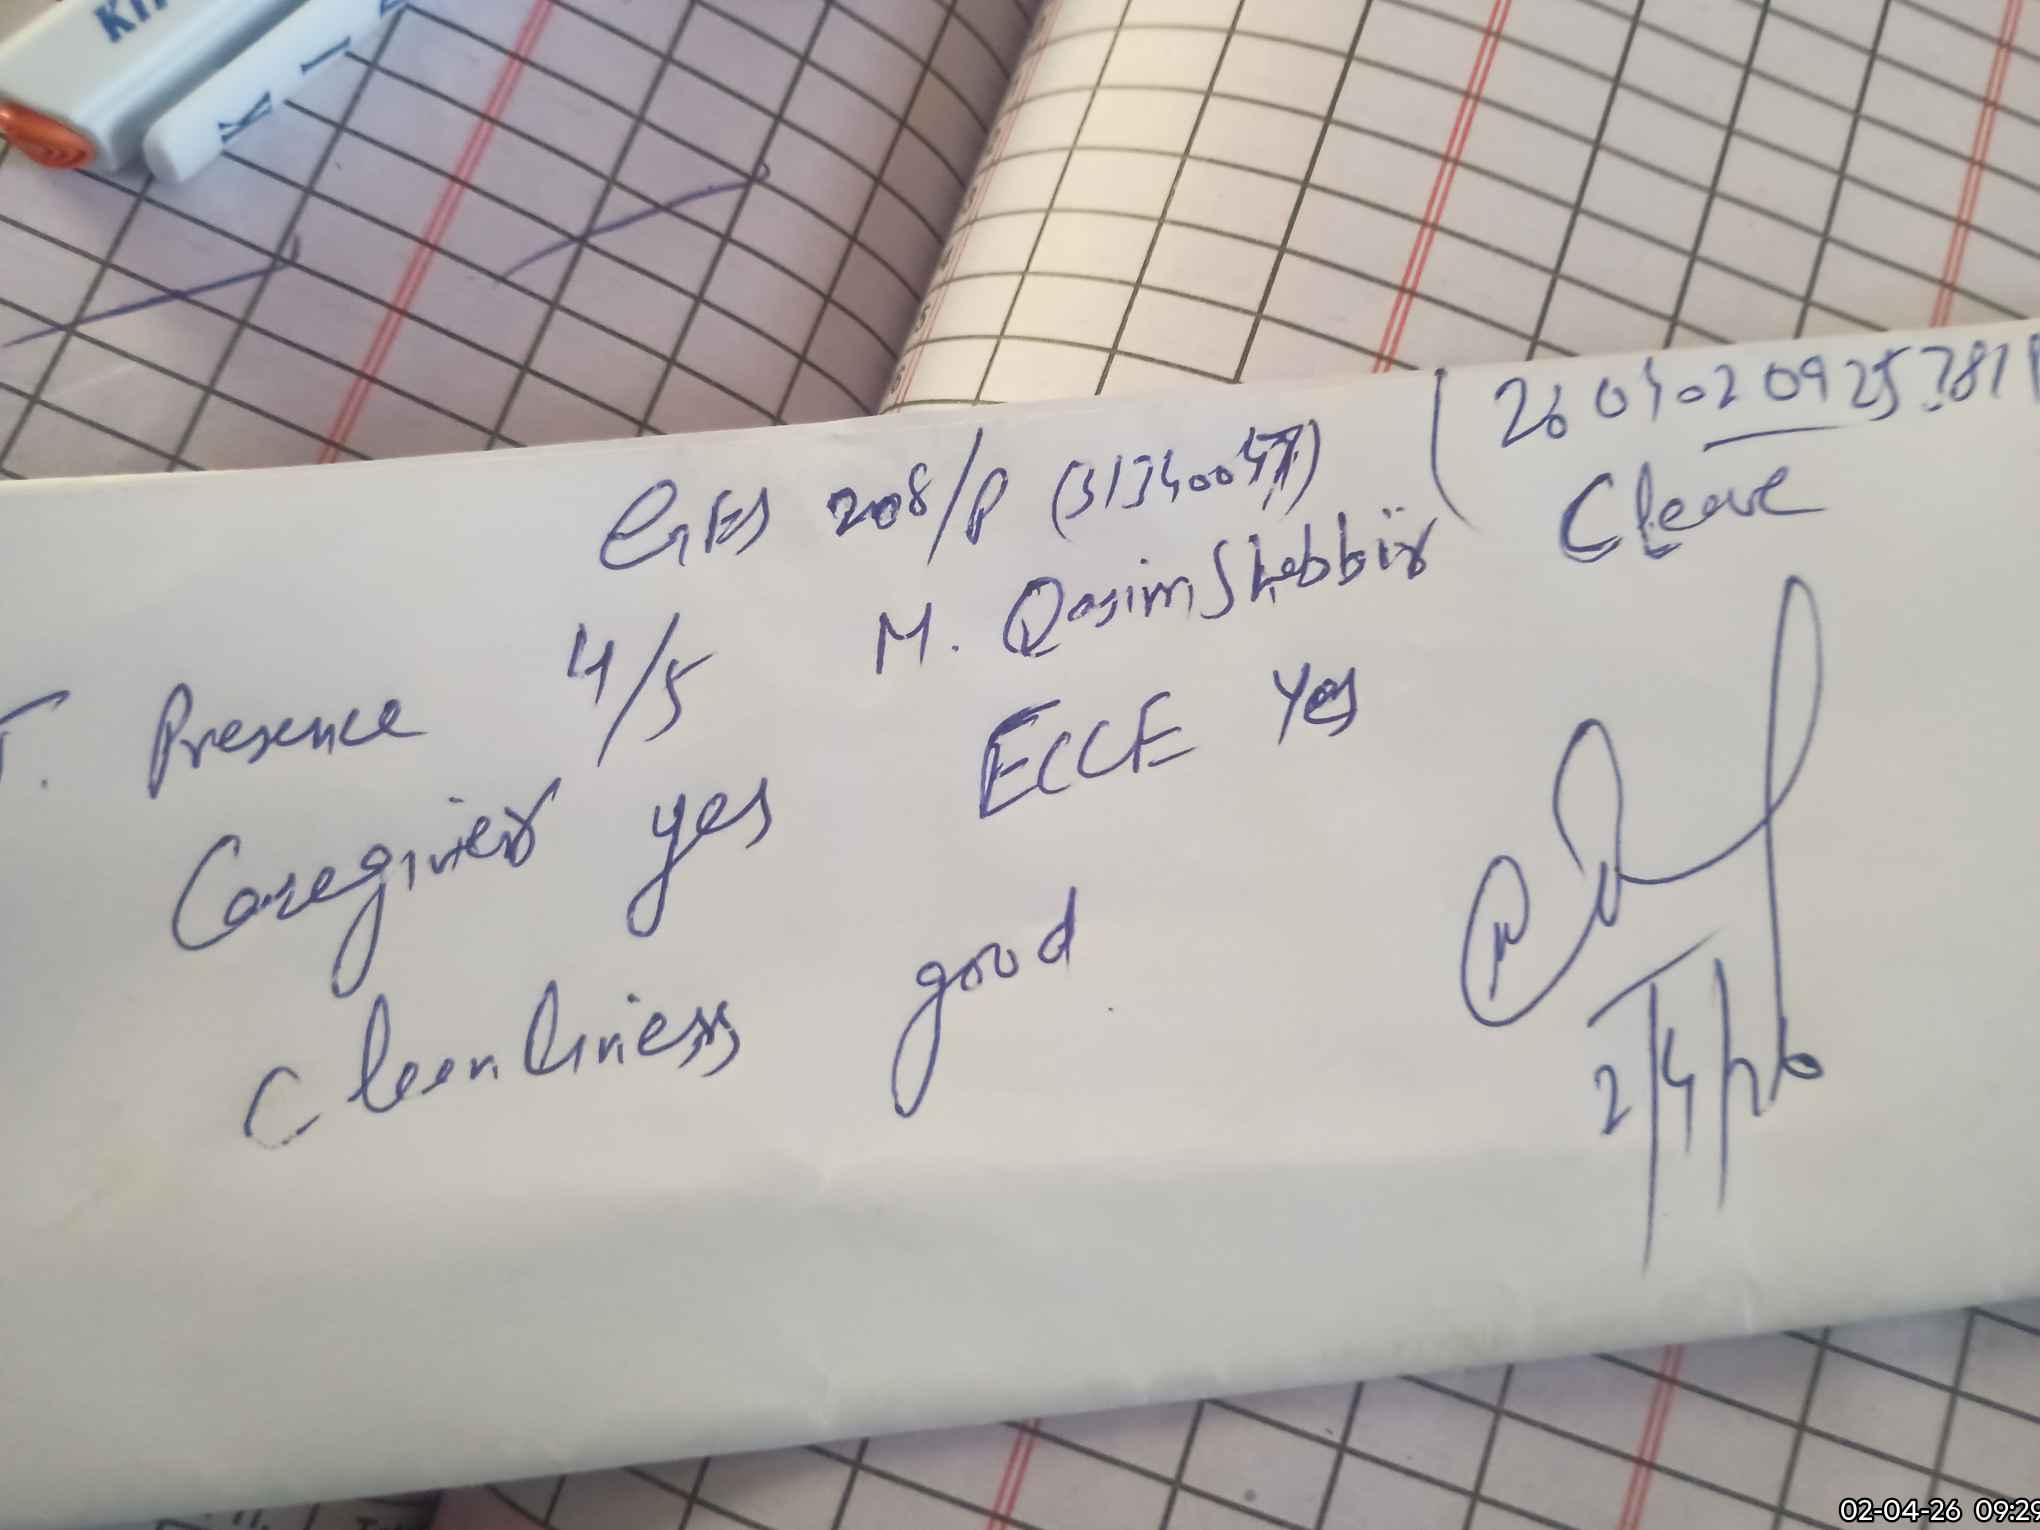 KI
K I
GES 208/P (31340047)
(26040209257818
M. Qasim Shabbir Cleave
T. Presence 4/5
ECCE Yes
Caregiver yes
Cleanliness good
2/4/26
02-04-26 09:29